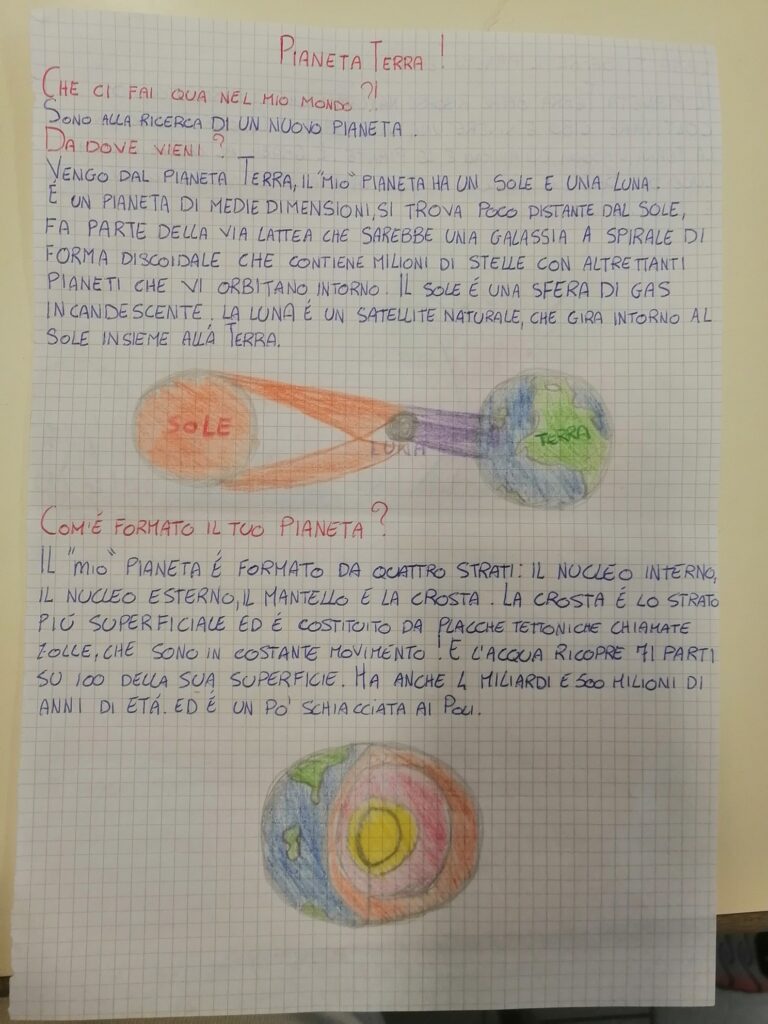 PIANETA TERRA !
CHE CI FAI QUA NEL MIO MONDO ?!
SONO ALLA RICERCA DI UN NUOVO PIANETA .
DA DOVE VIENI ?
VENGO DAL PIANETA TERRA, IL "MIO" PIANETA HA UN SOLE E UNA LUNA .
É UN PIANETA DI MEDIE DIMENSIONI, SI TROVA POCO DISTANTE DAL SOLE,
FA PARTE DELLA VIA LATTEA CHE SAREBBE UNA GALASSIA A SPIRALE DI
FORMA DISCOIDALE CHE CONTIENE MILIONI DI STELLE CON ALTRETTANTI
PIANETI CHE VI ORBITANO INTORNO. IL SOLE É UNA SFERA DI GAS
INCANDESCENTE. LA LUNA É UN SATELLITE NATURALE, CHE GIRA INTORNO AL
SOLE INSIEME ALLÁ TERRA.
SOLE
LUNA
TERRA
COM'É FORMATO IL TUO PIANETA ?
IL "MIO" PIANETA É FORMATO DA QUATTRO STRATI: IL NUCLEO INTERNO,
IL NUCLEO ESTERNO, IL MANTELLO E LA CROSTA. LA CROSTA É LO STRATO
PIÚ SUPERFICIALE ED É COSTITUITO DA PLACCHE TETTONICHE CHIAMATE
ZOLLE, CHE SONO IN COSTANTE MOVIMENTO ! E L'ACQUA RICOPRE 71 PARTI
SU 100 DELLA SUA SUPERFICIE. HA ANCHE 4 MILIARDI E 500 MILIONI DI
ANNI DI ETÁ. ED É UN PO' SCHIACCIATA AI POLI.